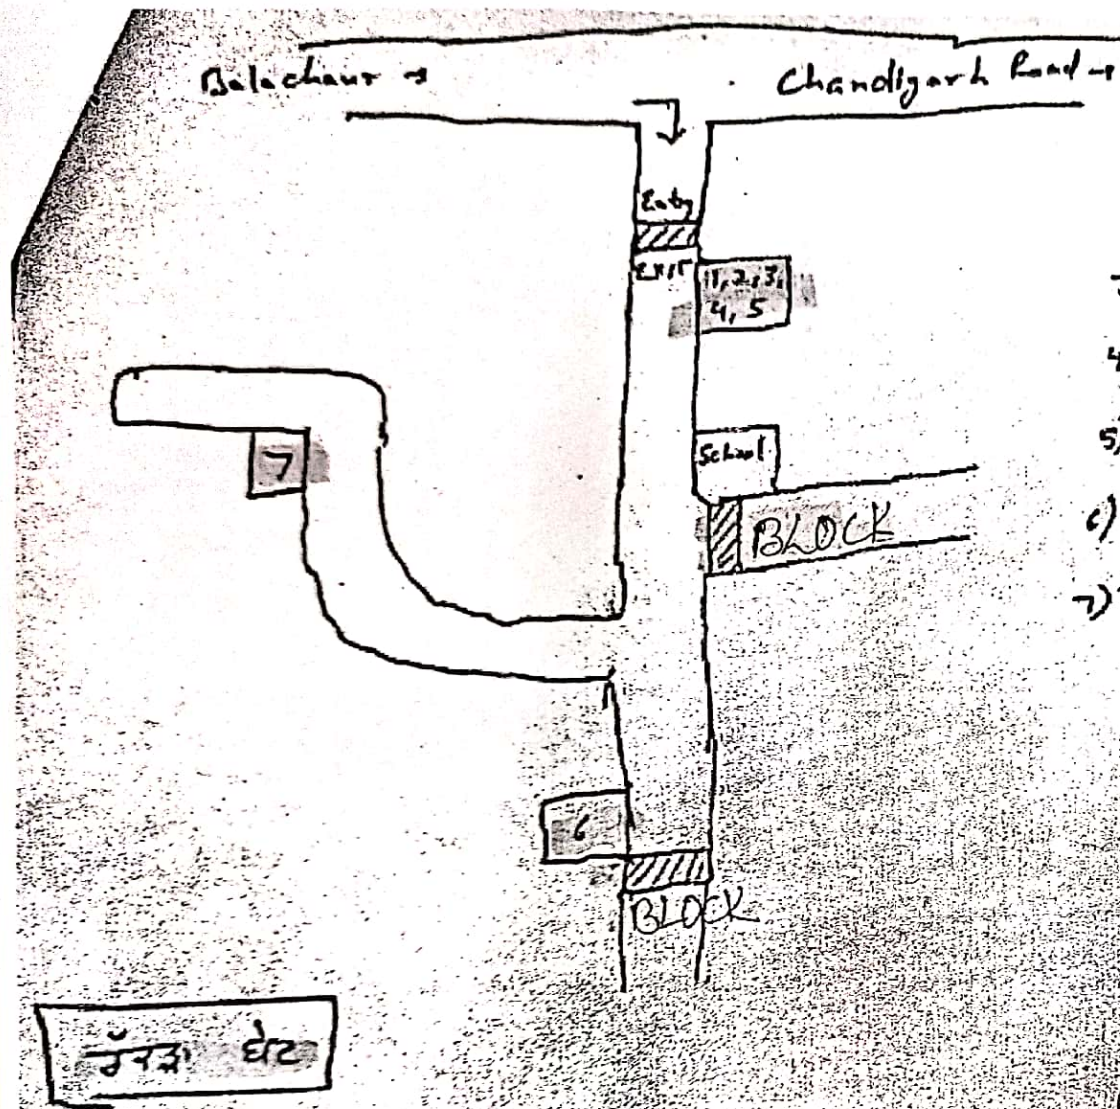 Balachaur →
Chandigarh Road →
Entry
Exit
1, 2, 3,
4, 5
7
School
BLOCK
6
BLOCK
5)
6)
7)
ਬੇਟ